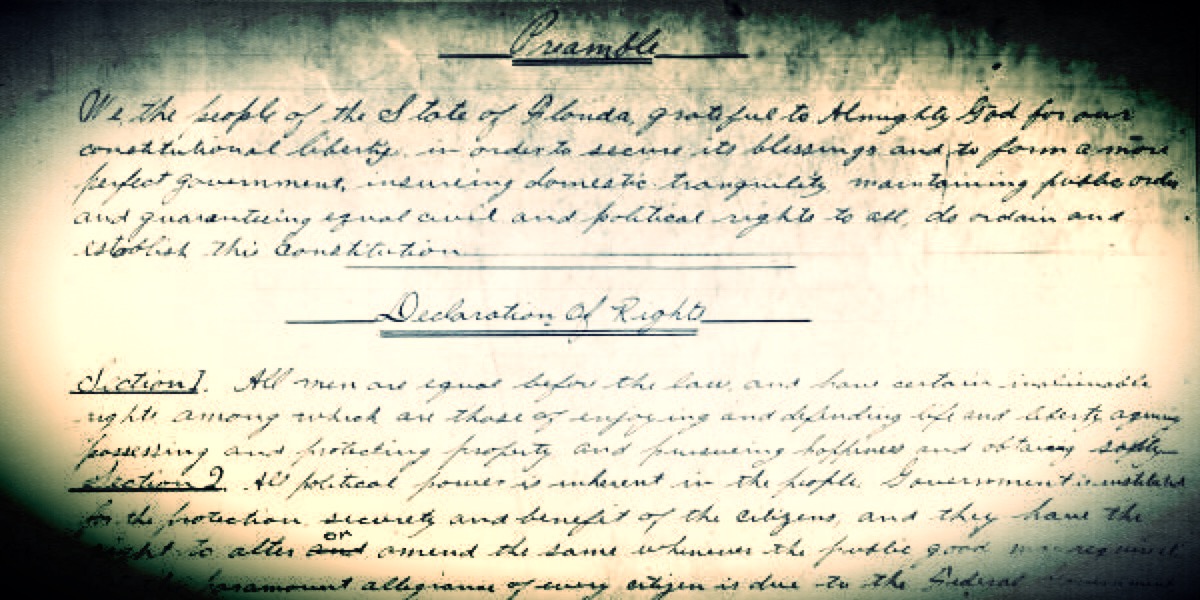 Preamble
We, the people of the State of Florida, grateful to Almighty God for our
constitutional liberty, in order to secure its blessings and to form a more
perfect government, insuring domestic tranquility maintaining public order
and guaranteeing equal civil and political rights to all, do ordain and
establish this Constitution
Declaration Of Rights
Section 1. All men are equal before the law, and have certain inalienable
rights among which are those of enjoying and defending life and liberty
possessing and protecting property and pursuing happiness and obtaining
Section 2. All political power is inherent in the people. Government is instituted
for the protection, security and benefit of the citizens, and they have the
or
right to alter and amend the same whenever the public good may require it
paramount allegiance of every citizen is due to the Federal